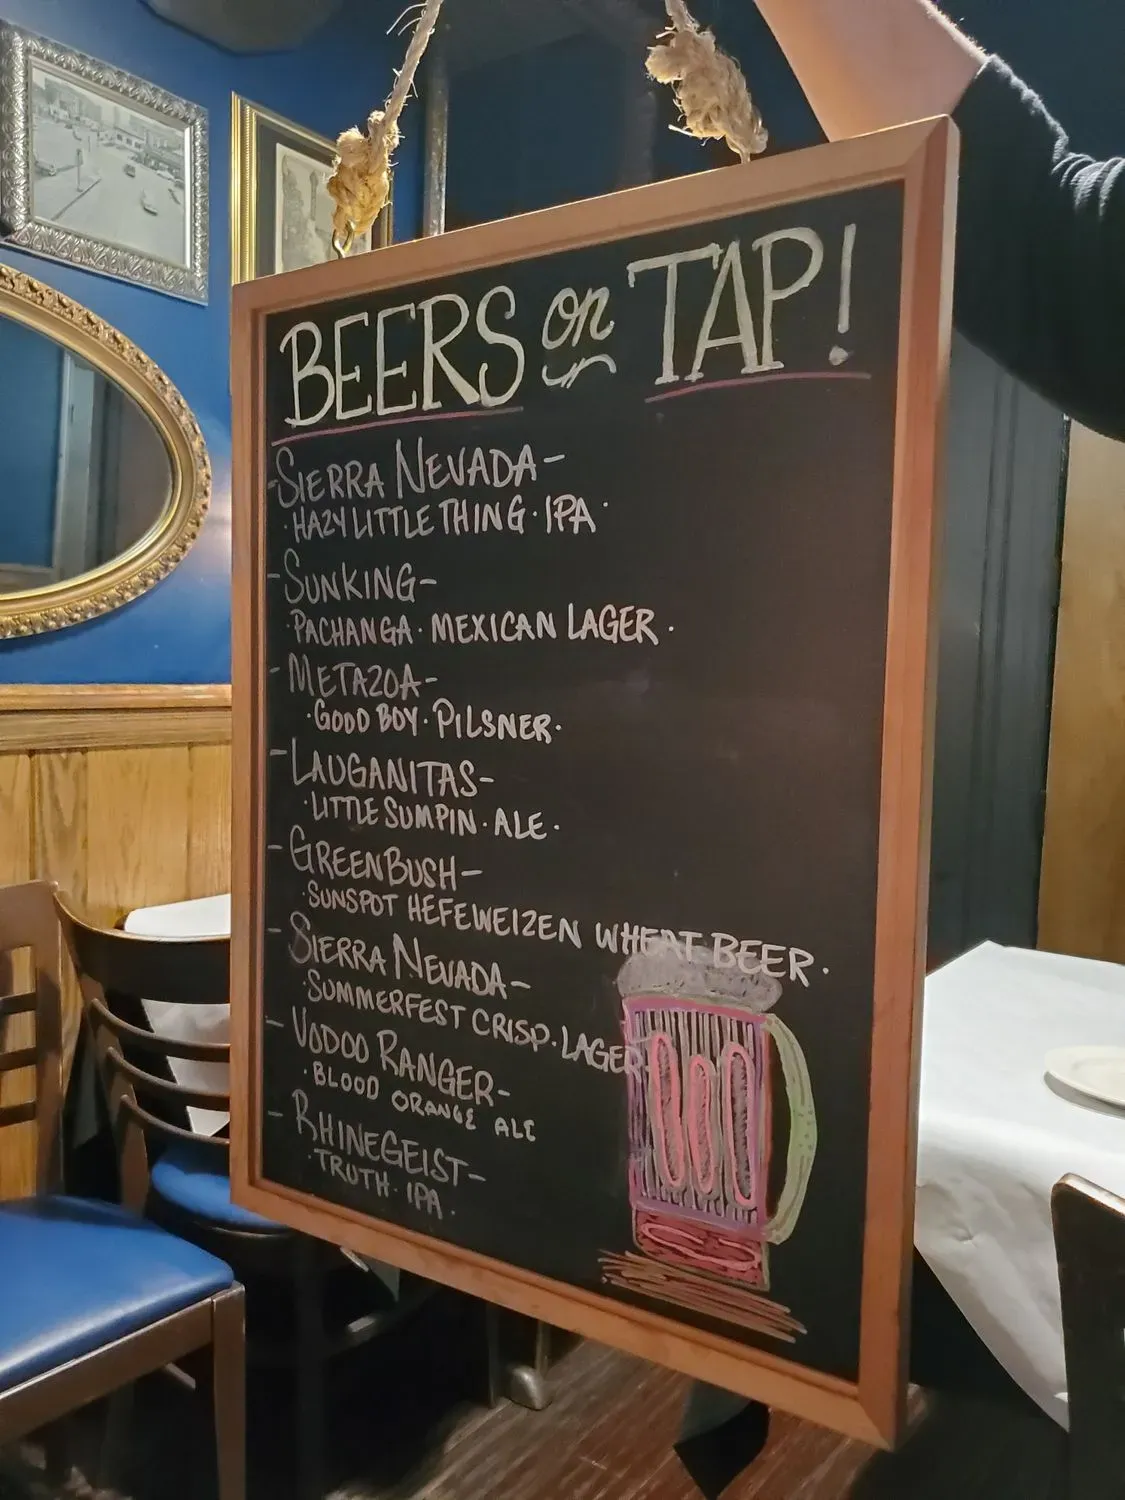 BEERS on TAP!
- SIERRA NEVADA -
· HAZY LITTLE THING · IPA ·
- SUNKING -
· PACHANGA · MEXICAN LAGER ·
- METAZOA -
· GOOD BOY · PILSNER ·
- LAUGANITAS -
· LITTLE SUMPIN · ALE ·
- GREENBUSH -
· SUNSPOT HEFEWEIZEN WHEAT BEER ·
- SIERRA NEVADA -
· SUMMERFEST CRISP · LAGER ·
- VODOO RANGER -
· BLOOD ORANGE ALE
- RHINEGEIST -
· TRUTH · IPA ·